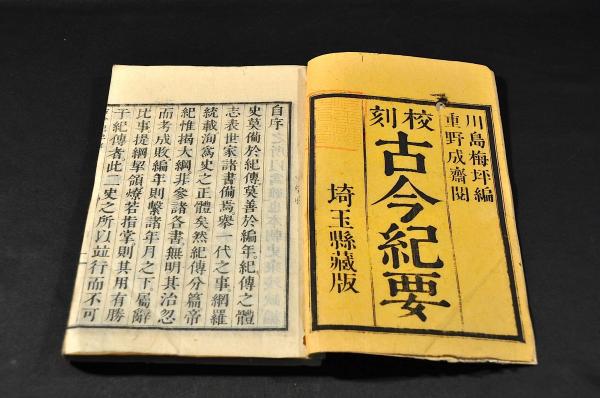 川島梅坪編
重野成齋閲
校刻
古今紀要
埼玉縣藏版
自序
史莫備於紀傳莫善於編年紀傳之體
志表世家諸書備焉舉一代之事網羅
統載洵爲史之正體矣然紀傳分篇帝
紀惟揭大綱非參諸各書無明其治忽
而考成敗編年則繫諸年月之下屬辭
比事提綱挈領燎若指掌則其用有勝
于紀傳者此二史之所以並行而不可